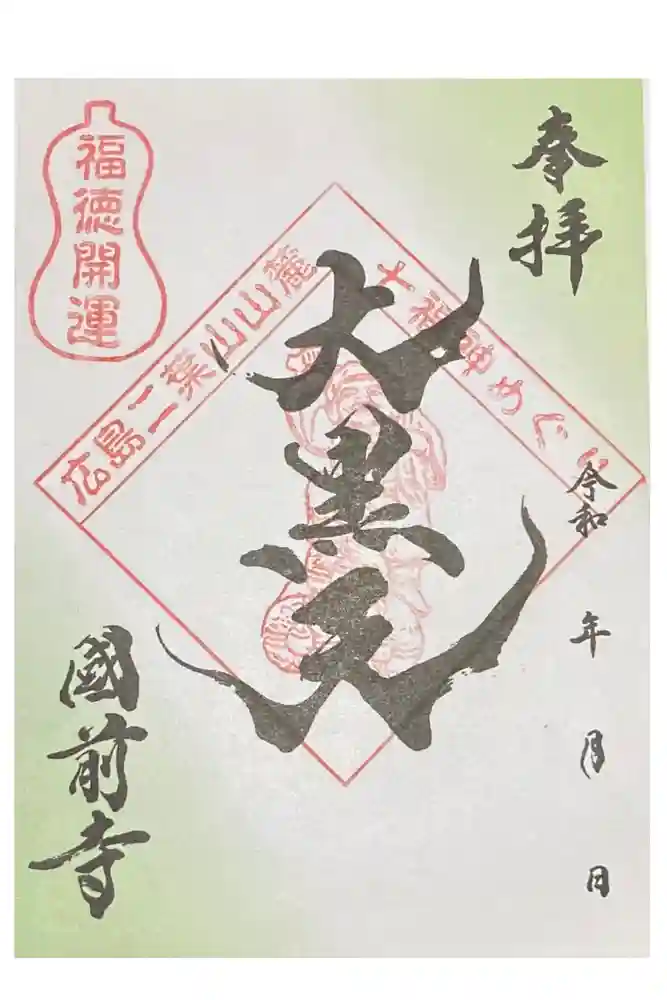 奉拝
令和　年　月　日
七福神めぐり
大黒天
広島二葉山山麓
福徳開運
國前寺